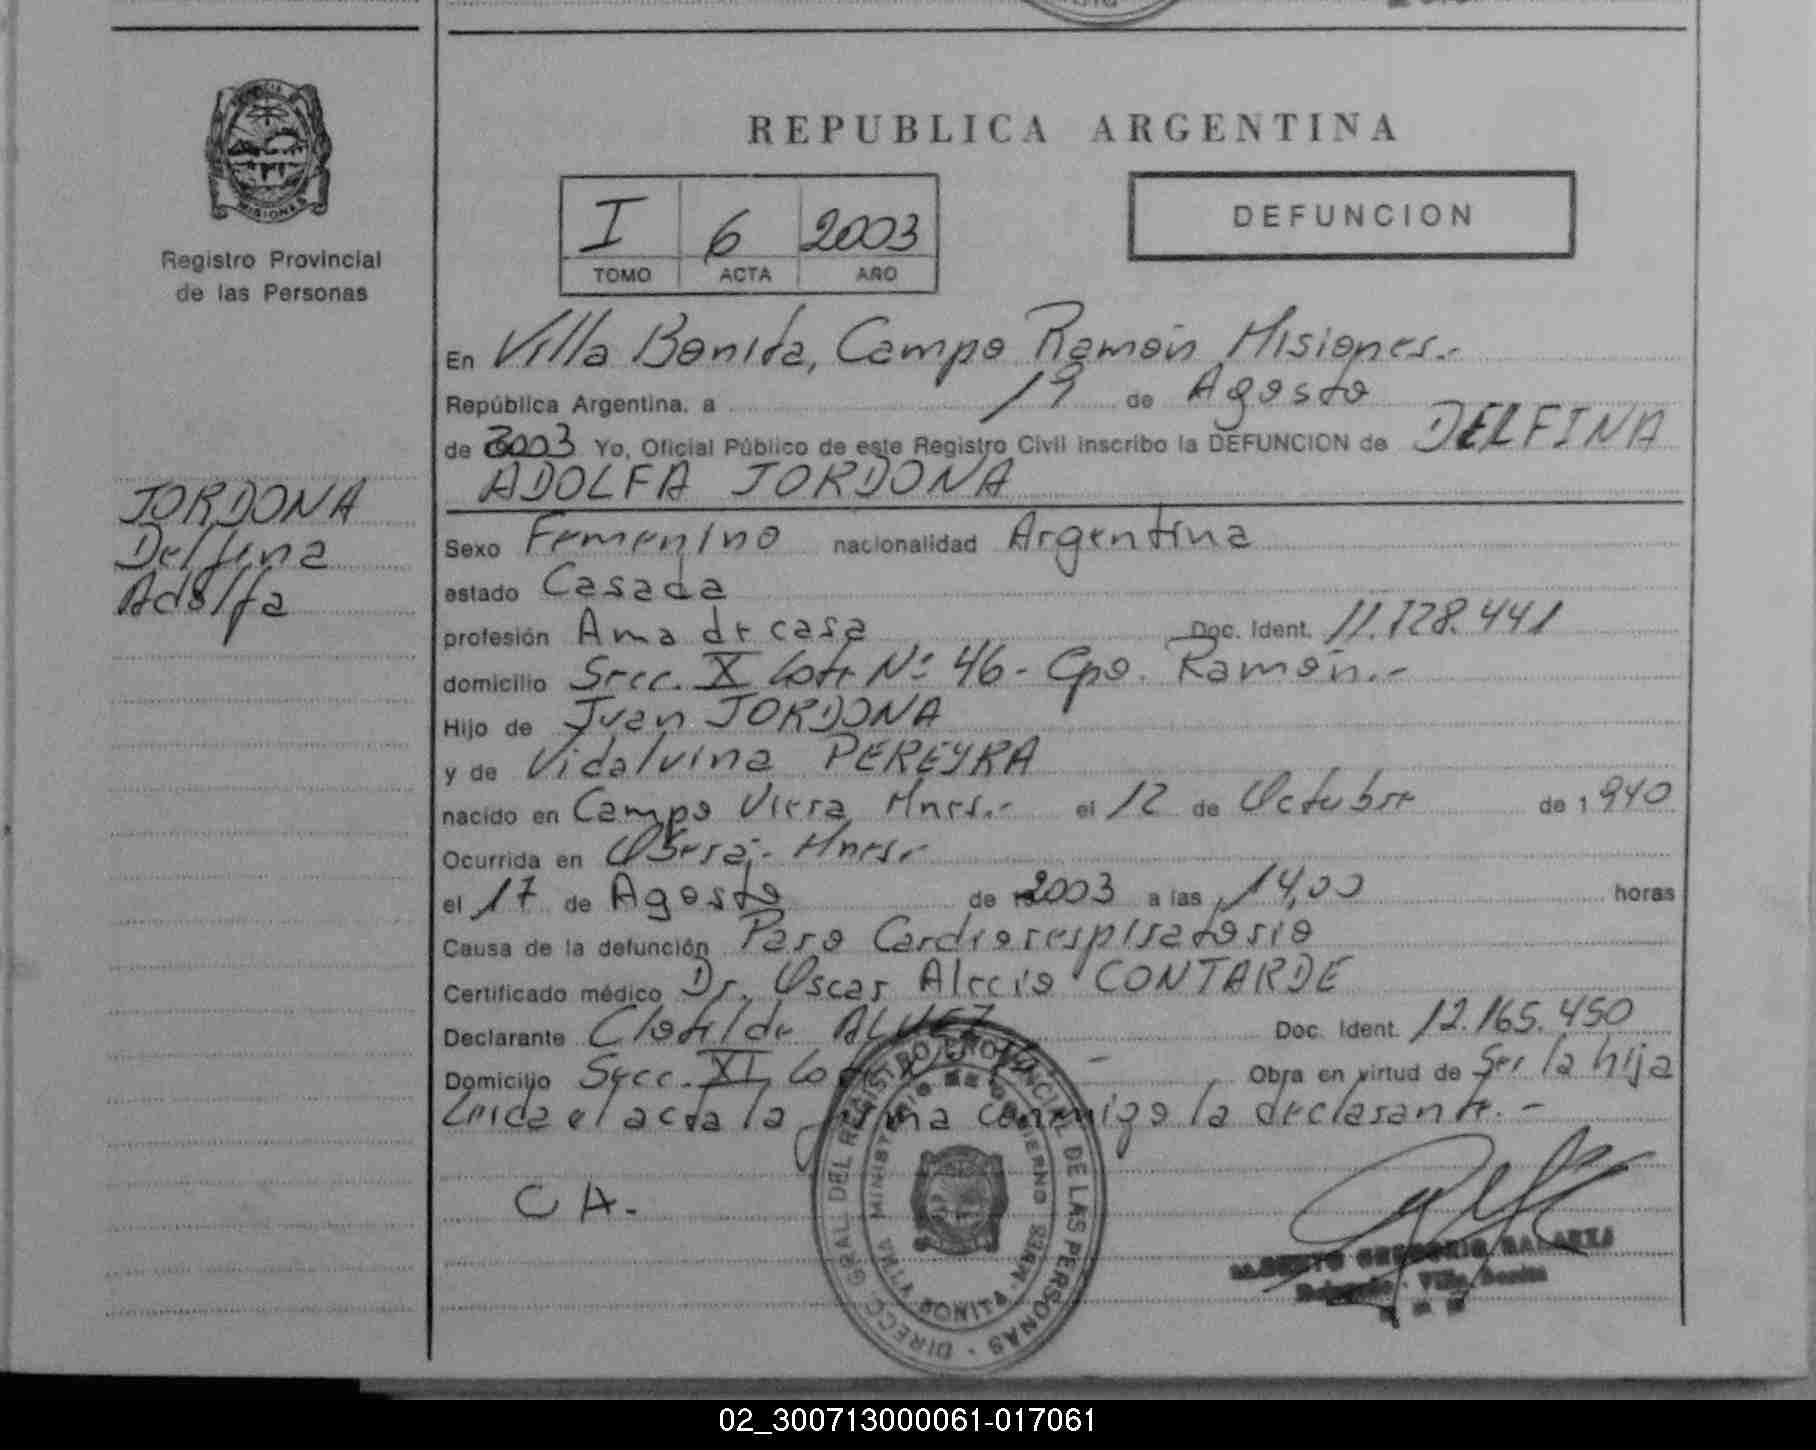 REPUBLICA ARGENTINA
MISIONES
Registro Provincial
de las Personas
I 6 2003
TOMO ACTA AÑO
DEFUNCION
En Villa Bonita, Campo Ramón Misiones.-
República Argentina, a 19 de Agosto
de 2003 Yo, Oficial Público de este Registro Civil inscribo la DEFUNCION de DELFINA
ADOLFA JORDONA
JORDONA
Delfina
Adolfa
Sexo Femenino nacionalidad Argentina
estado Casada
profesión Ama de casa Doc. Ident. 11.128.441
domicilio Secc. X Lote Nº 46 - Cpo. Ramón.-
Hijo de Juan JORDONA
y de Vidalvina PEREYRA
nacido en Campo Viera Mnes.- el 12 de Octubre de 1940
Ocurrida en Oberá.- Mnes.-
el 17 de Agosto de 2003 a las 14,00 horas
Causa de la defunción Paro Cardiorespiratorio
Certificado médico Dr. Oscar Alecio CONTARDE
Declarante Clotilde ALVEZ Doc. Ident. 12.165.450
Domicilio Secc. XI Lote - Obra en virtud de Ser la hija
Leida el acta la firma conmigo la declarante.-
C A.
DIRECC. GRAL. DEL REGISTRO PROVINCIAL DE LAS PERSONAS
MINISTERIO DE GOBIERNO
VILLA BONITA
GREGORIO
Villa Bonita
02_300713000061-017061